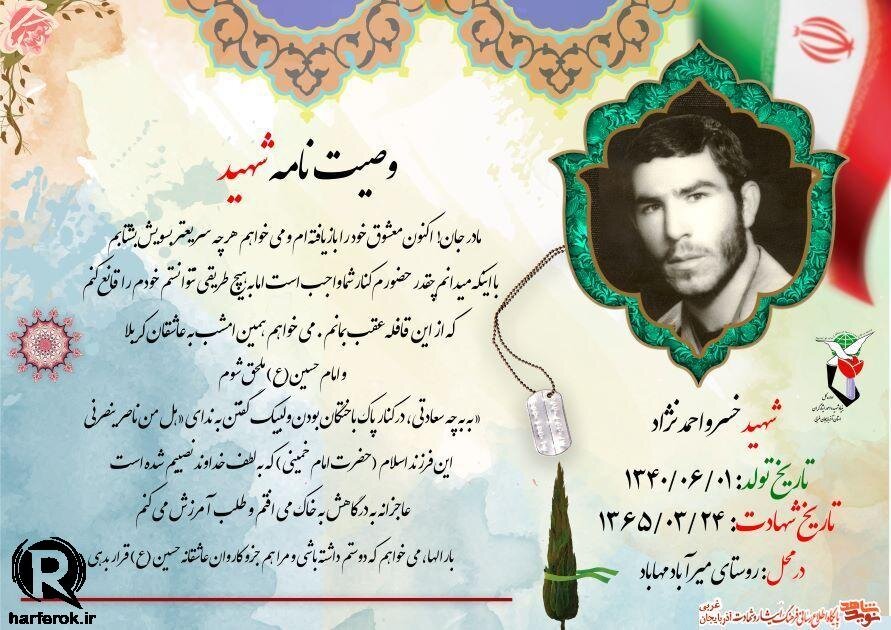 وصیت نامه شهید
مادر جان! اکنون معشوق خود را باز یافته ام و می خواهم هر چه سریعتر بسویش بشتابم
با اینکه میدانم چقدر حضورم کنار شما واجب است اما به هیچ طریقی نتوانستم خودم را قانع کنم
که از این قافله عقب بمانم . می خواهم همین امشب به عاشقان کربلا
و امام حسین (ع) ملحق شوم
«به به چه سعادتی، در کنار پاک باختگان بودن و لبیک گفتن به ندای «هل من ناصر ینصرنی
این فرزند اسلام (حضرت امام خمینی) که به لطف خداوند نصیبم شده است
عاجزانه به درگاهش به خاک می افتم و طلب آمرزش می کنم
بار الها، می خواهم که دوستم داشته باشی و مرا هم جزو کاروان عاشقانه حسین (ع) قرار بدهی
شهید خسرو احمدنژاد
تاریخ تولد: ۱۳۴۰/۰۶/۰۱
تاریخ شهادت: ۱۳۶۵/۰۳/۲۴
در محل: روستای میرآباد مهاباد
نوید شاهد
پایگاه اطلاع رسانی فرهنگ ایثار و شهادت آذربایجان غربی
R
harferok.ir